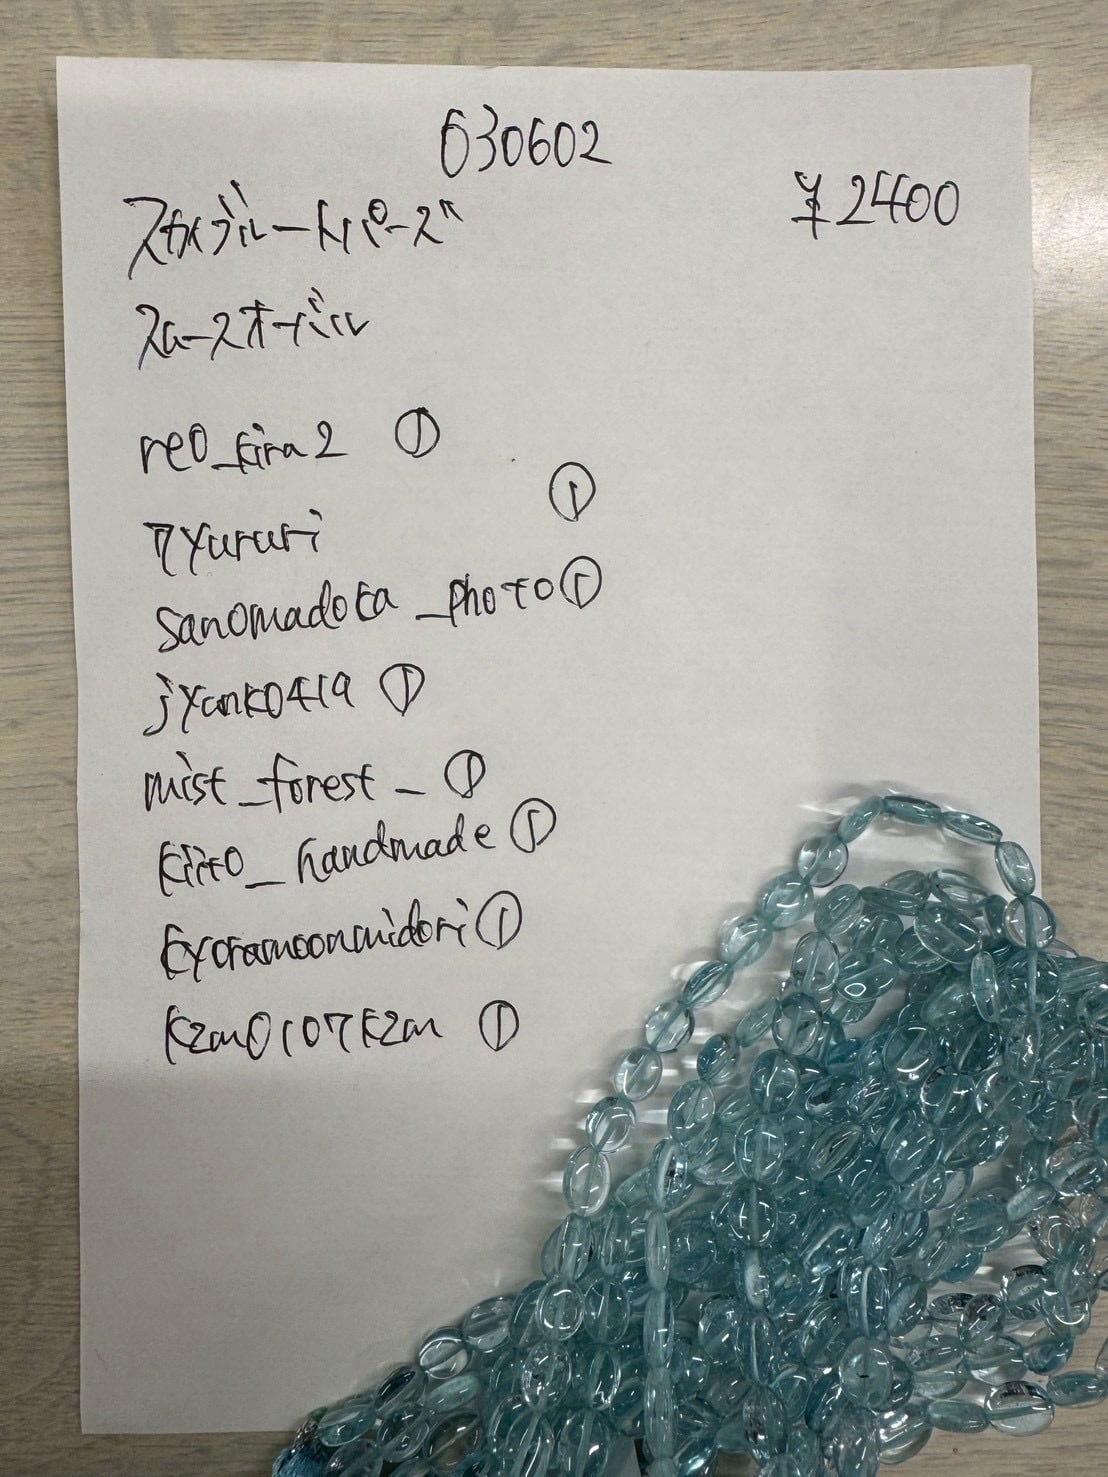 630602
¥2400
スカイブルートパーズ
スムースオーバル
reo_kira2 ①
ryururi ①
sanomadoka_photo ①
jyanko419 ①
mist_forest_ ①
kiito_handmade ①
kyoramoonmidori ①
kzm0107kzm ①